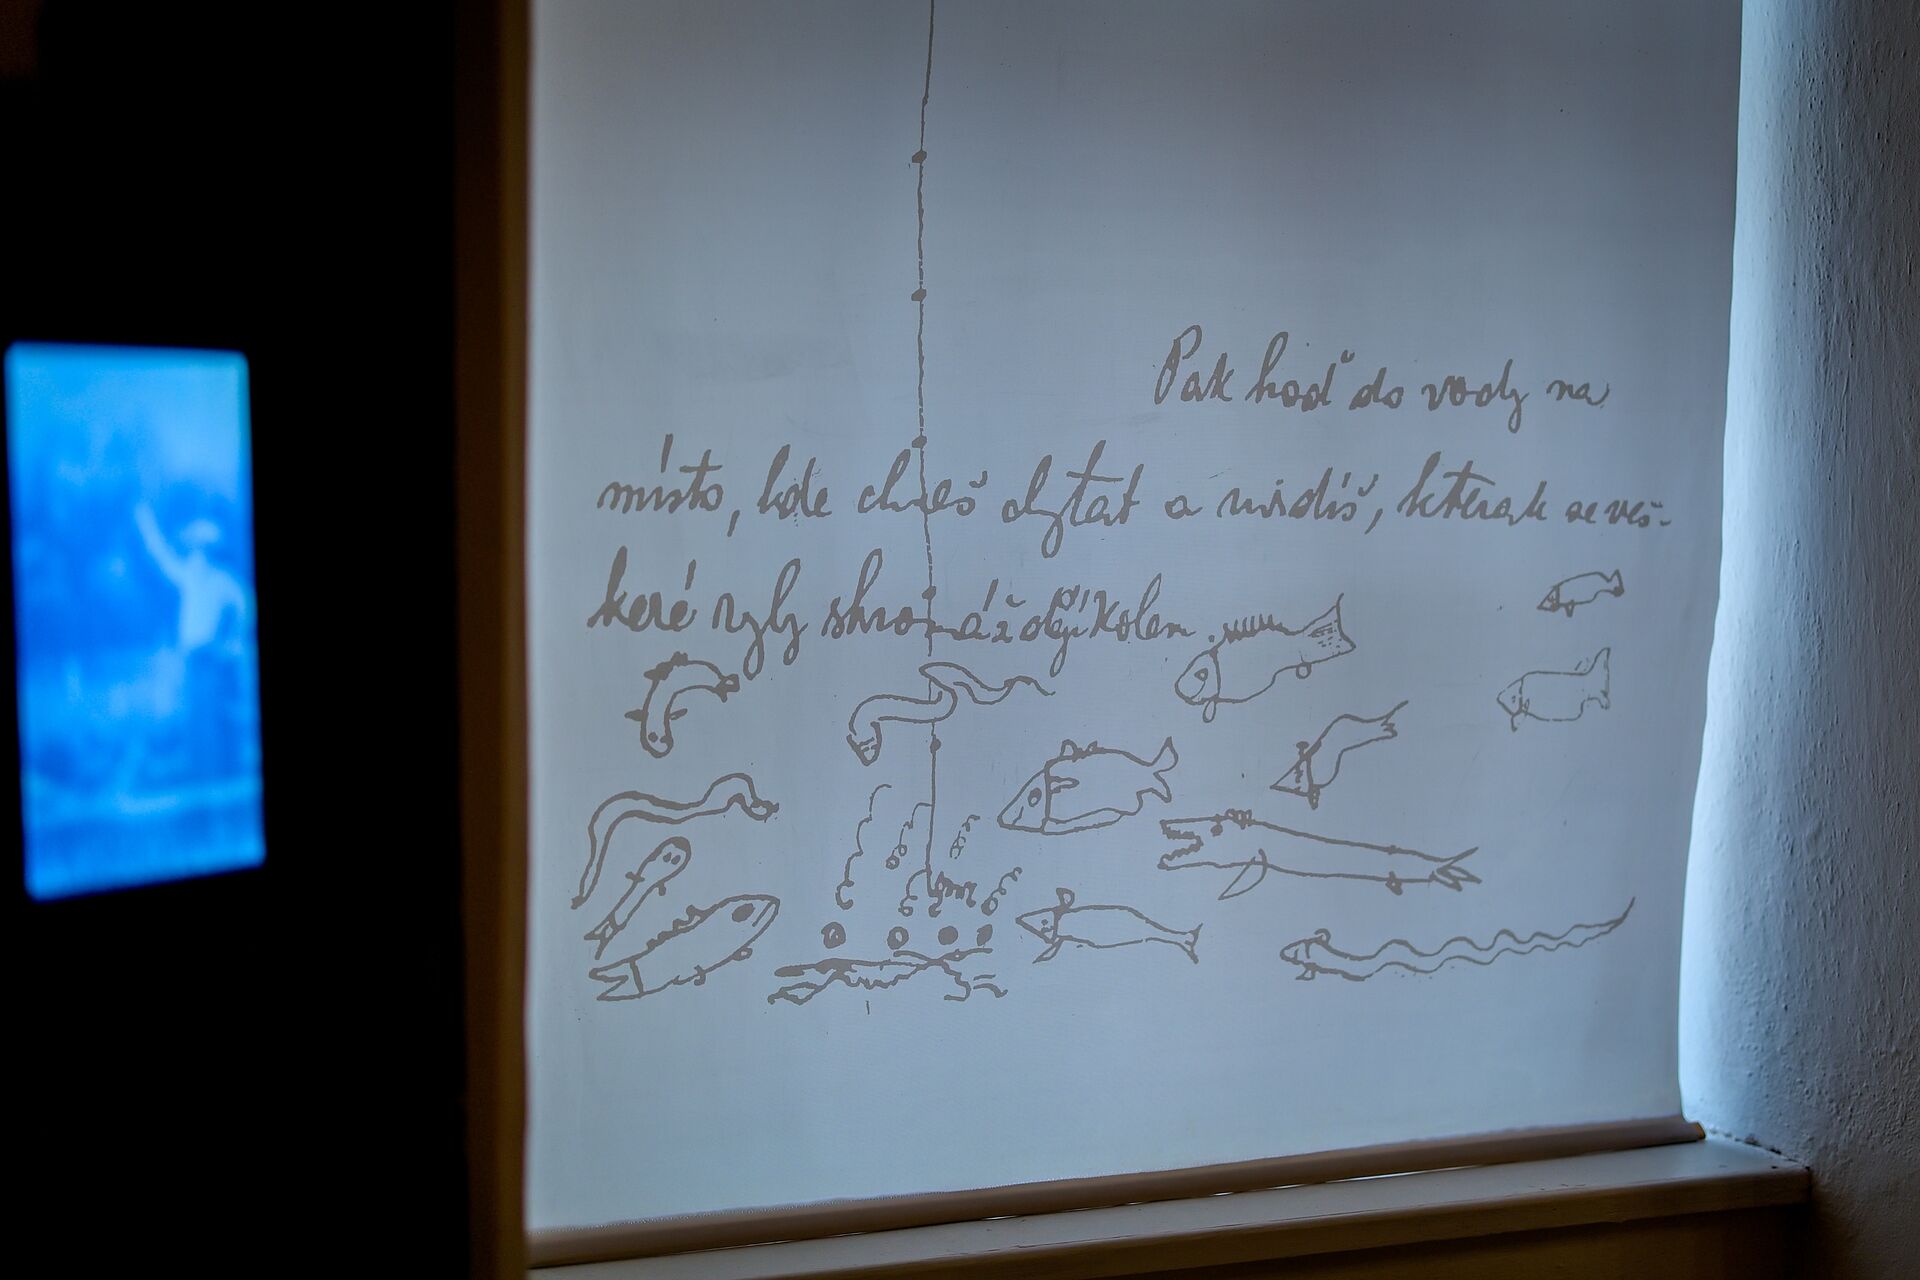 Pak hoď do vody na
místo, kde chceš chytat a uvidíš, kterak se veš-
keré ryby shromáždějí kolem.